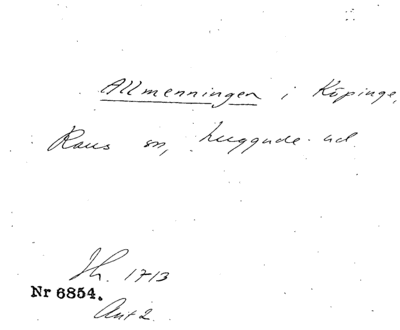 Allmenningen i Köpinge,
Raus sn, Luggude hd
Jh. 1713
Nr 6854.
Ant 2